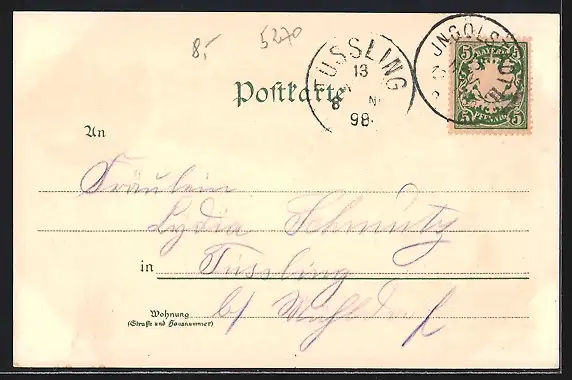 8,- 5270
TUSSLING
13
8 N
98
JNGOLS
BAYERN
5 5
5 5
PFENNIG
Postkarte
An
Fräulein
Lydia Schmutz
in Tüssling
b/ Mühldorf
Wohnung
(Straße und Hausnummer)